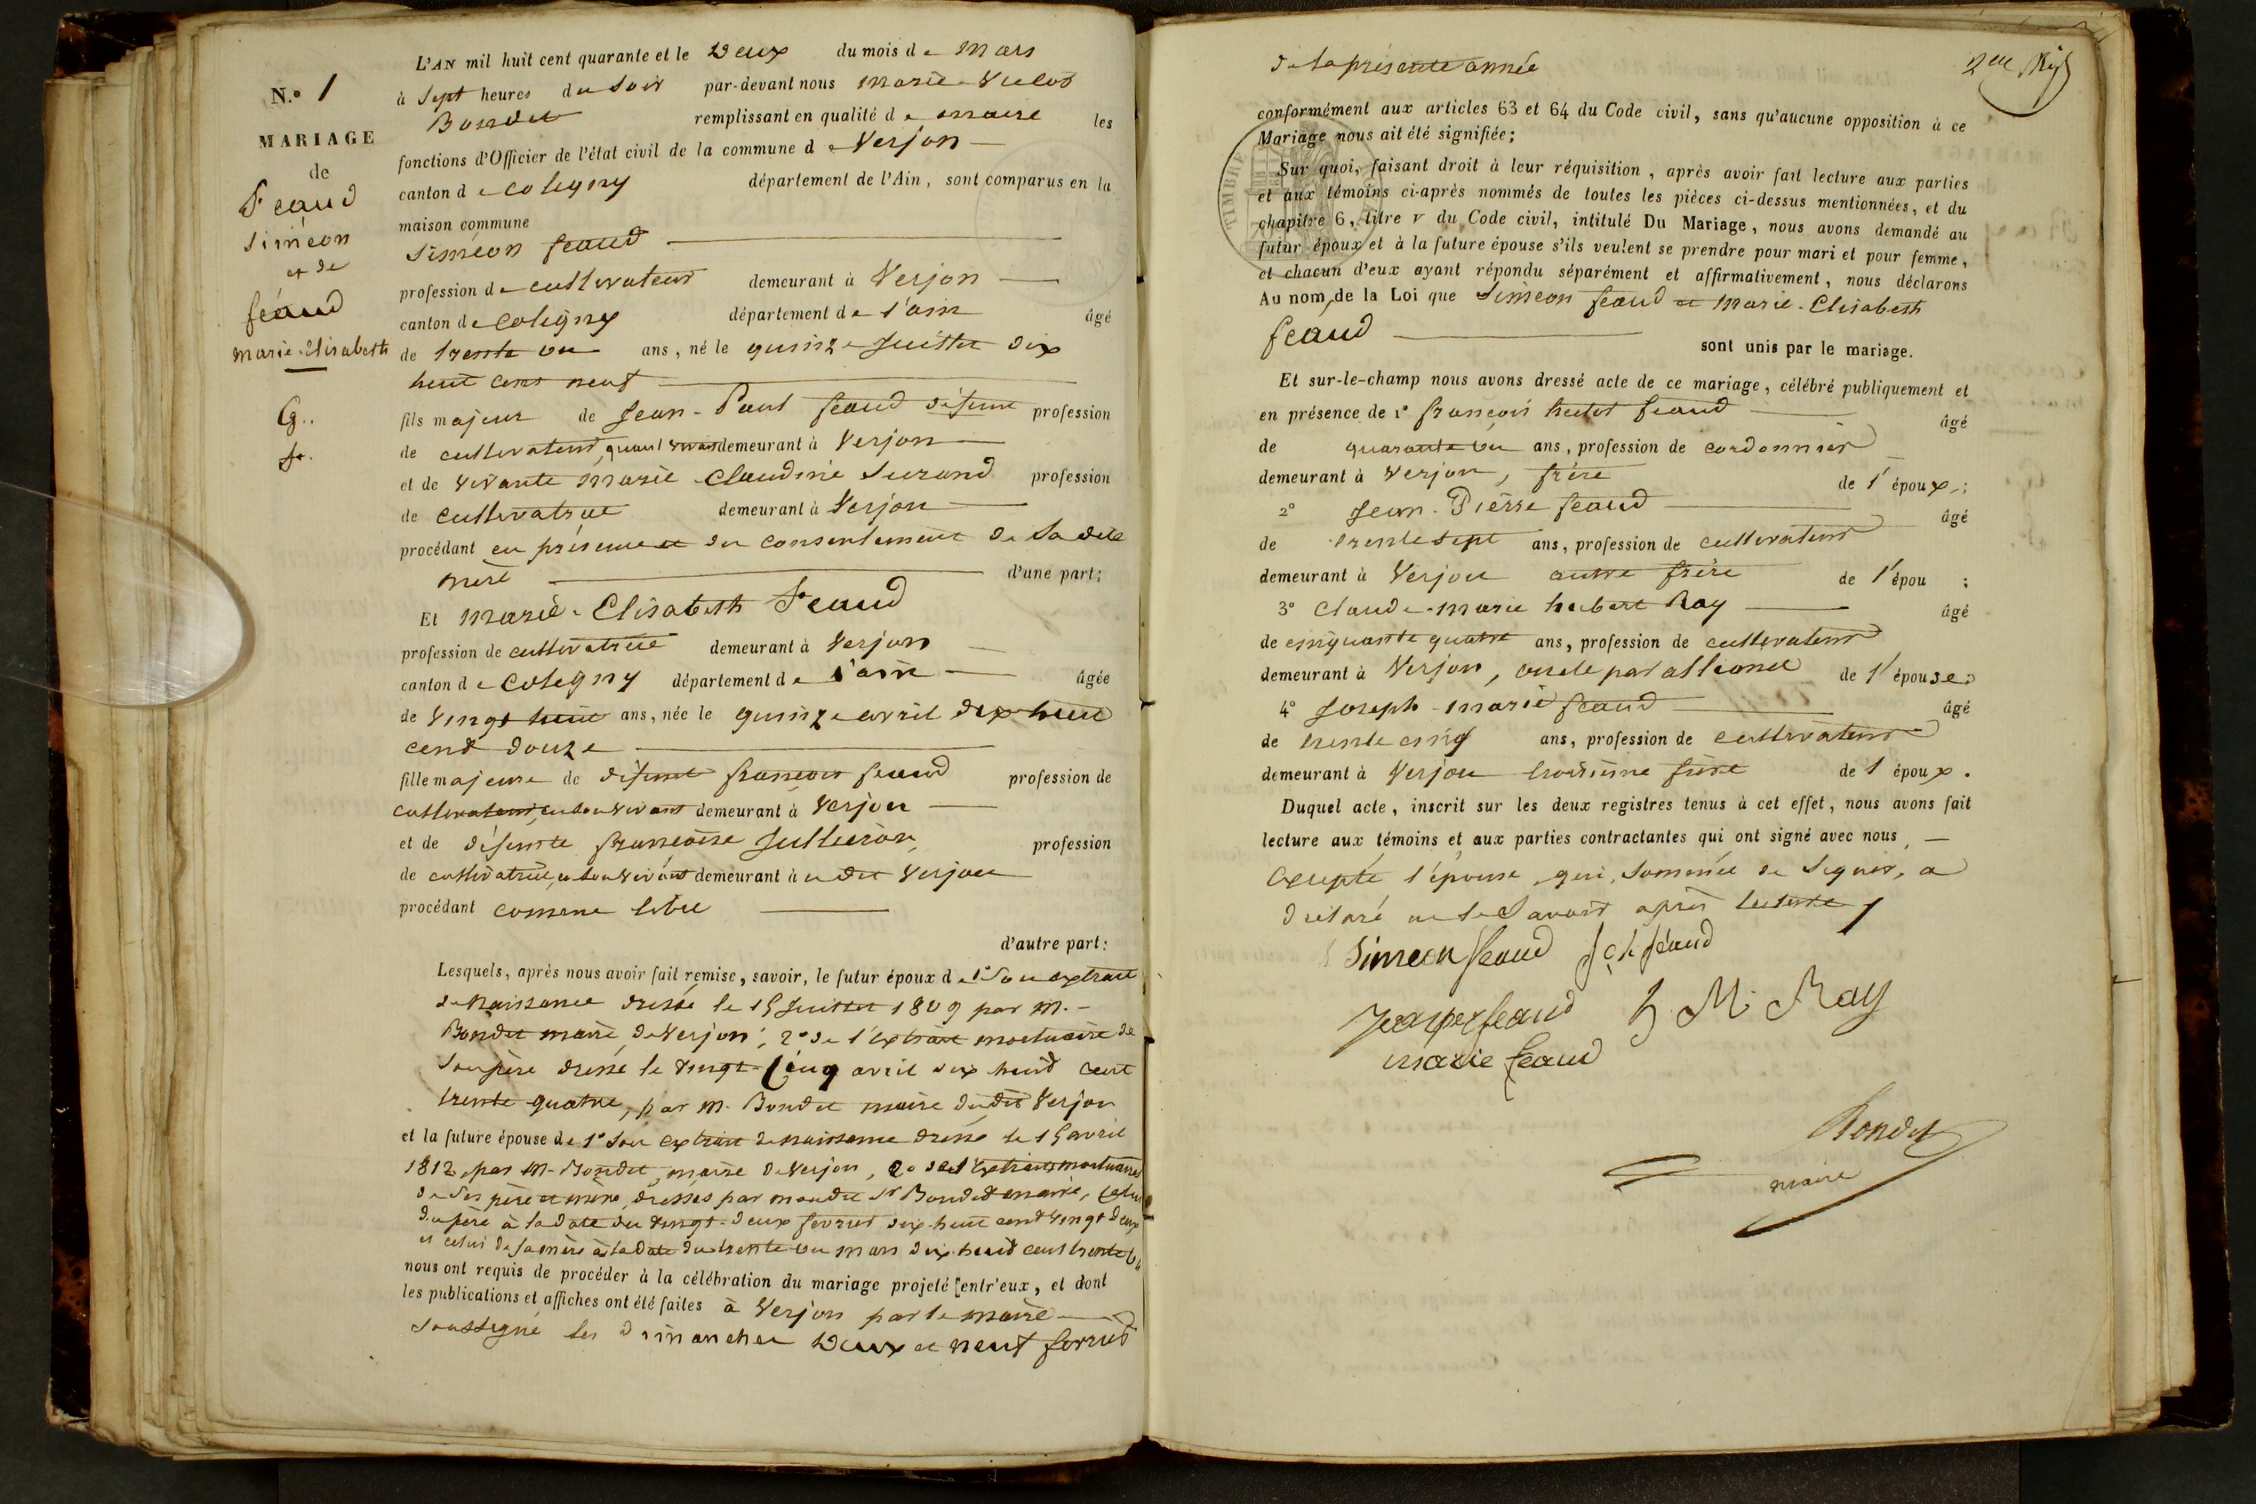 N.º 1
MARIAGE
de
Feaud
Siméon
et de
féaud
marie-Elisabeth
L'AN mil huit cent quarante et le Deux du mois de mars
à Sept heures du Soir par-devant nous marie-
Bondet remplissant en qualité de maire les
fonctions d'Officier de l'état civil de la commune de Verjon
canton de coligny département de l'Ain, sont comparus en la
maison commune
Siméon feaud
profession de cultivateur demeurant à Verjon
canton de Coligny département de l'ain âgé
de trente un ans, né le quinze Juillet dix
huit cent neuf
fils majeur de Jean-Paul feaud défunt profession
de cultivateur, quand vivait demeurant à Verjon
et de vivante marie Claudine Durand profession
de cultivatrice demeurant à Verjon
procédant en présence et du consentement de Sa dite
mère d'une part;
Et marie-Elisabeth Feaud
profession de cultivatrice demeurant à Verjon
canton de Coligny département de l'ain âgée
de vingt huit ans, née le quinze avril dix huit
cent douze
fille majeure de défunt françois feaud profession de
cultivateur, en son vivant demeurant à Verjon
et de défunte françoise Jullieron profession
de cultivatrice, en son vivant demeurant à udit Verjon
procédant comme libre
d'autre part:
Lesquels, après nous avoir fait remise, savoir, le futur époux de 1º Son extrait
de naissance dressé le 15 Juillet 1809 par M.
Bondet maire de Verjon; 2º de l'extrait mortuaire de
Son père dressé le vingt-Cinq avril dix huit cent
trente quatre, par M. Bondet maire dudit Verjon
et la future épouse de 1º Son extrait de naissance dressé le 15 avril
1812, par M. Bondet, maire de Verjon, 2º des extraits mortuaires
de Ses père et mère, dressés par mondit Sr Bondet maire, Celui
du père à la date du vingt-deux fevrier dix-huit cent vingt deux
et celui de la mère à la date du trente un mars dix huit cent trente
nous ont requis de procéder à la célébration du mariage projeté entr'eux, et dont
les publications et affiches ont été faites à Verjon par le maire
soussigné les dimanches Deux et neuf fevrier
2me
de la présente année
conformément aux articles 63 et 64 du Code civil, sans qu'aucune opposition à ce
Mariage nous ait été signifiée;
TIMBRE
Sur quoi, faisant droit à leur réquisition, après avoir fait lecture aux parties
et aux témoins ci-après nommés de toutes les pièces ci-dessus mentionnées, et du
chapitre 6, titre v du Code civil, intitulé Du Mariage, nous avons demandé au
futur époux et à la future épouse s'ils veulent se prendre pour mari et pour femme,
et chacun d'eux ayant répondu séparément et affirmativement, nous déclarons
Au nom de la Loi que Siméon feaud et Marie-Elisabeth
feaud sont unis par le mariage.
Et sur-le-champ nous avons dressé acte de ce mariage, célébré publiquement et
en présence de 1º françois feaud âgé
de quarante un ans, profession de cordonnier
demeurant à Verjon, frère de l'époux;
2º Jean-Pierre feaud âgé
de trente sept ans, profession de cultivateur
demeurant à Verjon autre frère de l'épou ;
3º Claude-marie hubert Ray âgé
de cinquante quatre ans, profession de cultivateur
demeurant à Verjon, oncle par alliance de l'épouse;
4º Joseph-marie feaud âgé
de trente cinq ans, profession de cultivateur
demeurant à Verjon troisième frère de l époux.
Duquel acte, inscrit sur les deux registres tenus à cet effet, nous avons fait
lecture aux témoins et aux parties contractantes qui ont signé avec nous,
excepté l'épouse, qui, sommée de signer, a
déclaré ne le Savoir après lecture
Simeon feaud feaud
feaud M Ray
marie feaud
Bondet
maire